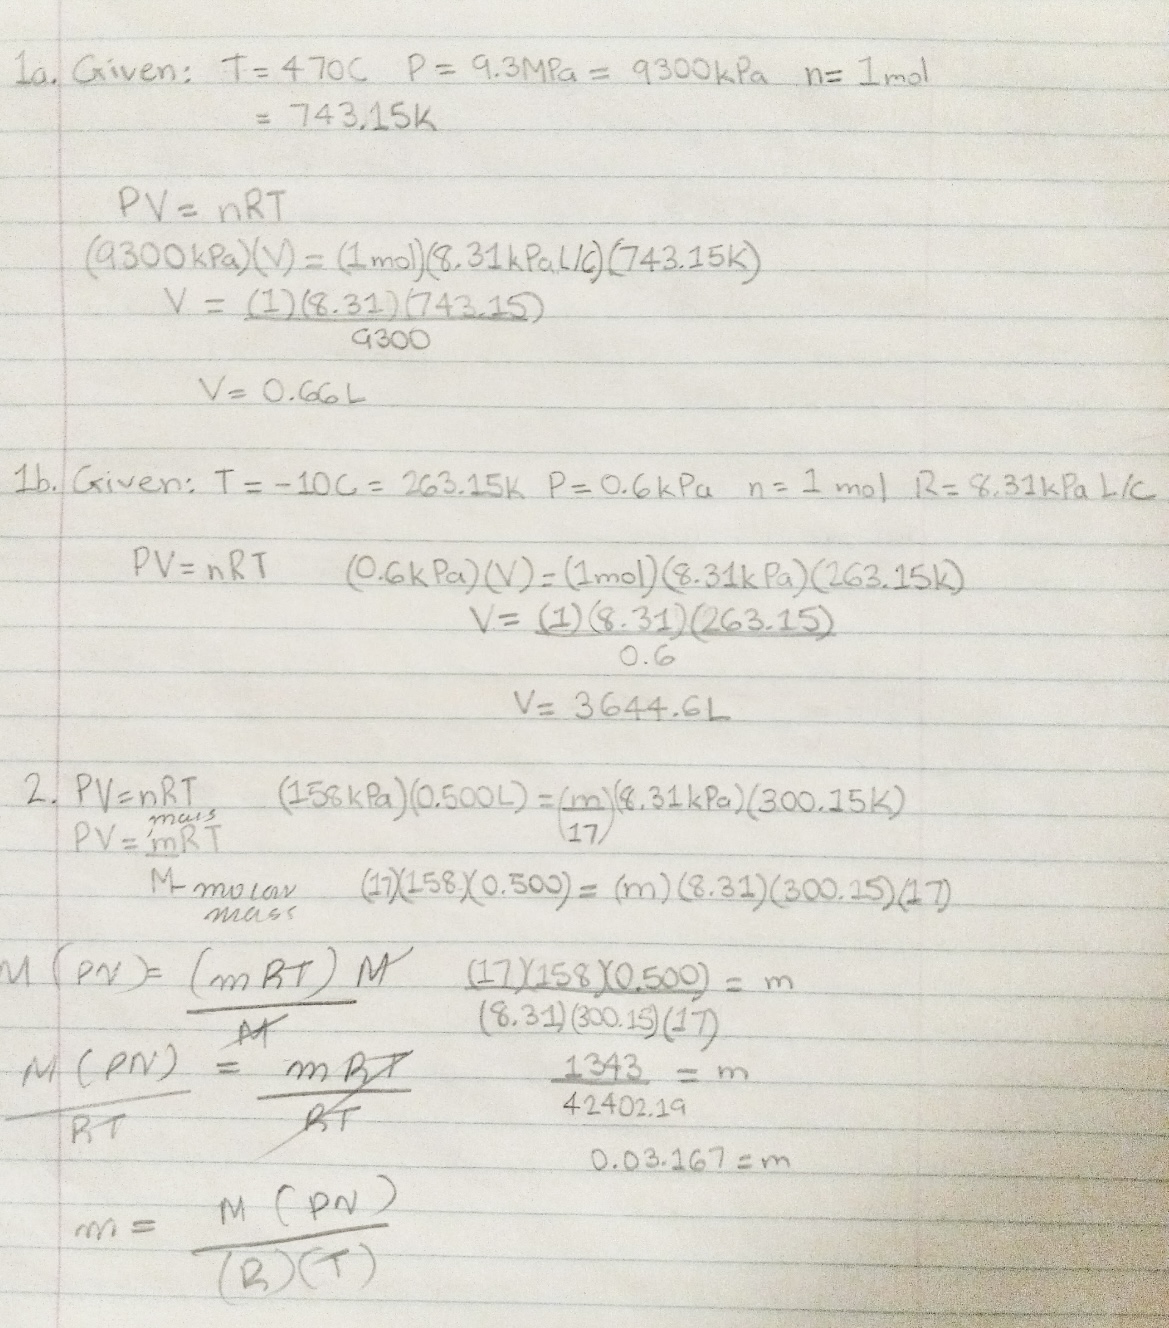 1a. Given: T = 470C P = 9.3MPa = 9300kPa n= 1mol
= 743.15K
PV = nRT
(9300kPa)(V) = (1mol)(8.31kPaL/C)(743.15K)
V = (1)(8.31)(743.15)
9300
V = 0.66L
1b. Given: T = -10C = 263.15K P = 0.6kPa n = 1 mol R = 8.31kPa L/C
PV = nRT (0.6kPa)(V) = (1mol)(8.31kPa)(263.15K)
V = (1)(8.31)(263.15)
0.6
V = 3644.6L
2. PV=nRT (158kPa)(0.500L) = (m)(8.31kPa)(300.15K)
mass 17
PV = mRT
M molar (17)(158)(0.500) = (m)(8.31)(300.15)(17)
mass
M (PV) = (mRT) M (17)(158)(0.500) = m
M (8.31)(300.15)(17)
M (PV) = mRT 1343 = m
RT RT 42402.19
0.03.167 = m
m = M (PV)
(R)(T)